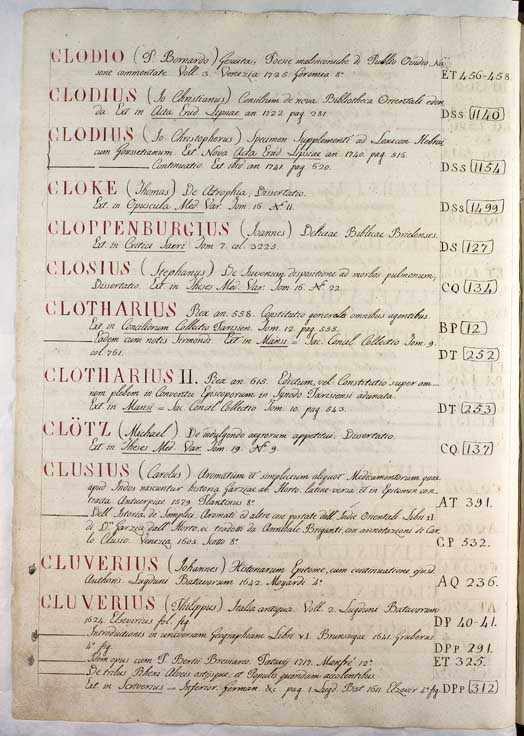 CLODIO (P. Bernardo) Gesuita. Poesie malinconiche di Publio Ovidio Na-
sone commentate. Voll. 3. Venezia 1725. Geremia 8° ET 456-458
CLODIUS (Jo. Christianus) Consilium de nova Bibliotheca Orientali eden-
da. Ext. in Acta Erud. Lipsiae an. 1722. pag. 281. DSs 1140
CLODIUS (Jo. Christophorus) Specimen Supplementi ad Lexicon Hebrai
cum Goussetianum. Ext. Nova Acta Erud. Lipsiae an. 1740. pag. 316.
Continuatio. Ext. ibid. an. 1741. pag. 520. DSs 1154
CLOKE (Thomas) De Atrophia. Dissertatio.
Ext. in Opuscula Med. Var. Tom. 16. N° 11. DSs 1499
CLOPPENBURGIUS (Joannes) Deliciae Biblicae Brielenses.
Ext. in Critici Sacri Tom. 7. col. 3223. DS 127
CLOSIUS (Stephanus) De Juvenum dispositione ad morbos pulmonum,
Dissertatio. Ext. in Theses Med. Var. Tom. 16. N° 22. CQ 134
CLOTHARIUS Rex an. 558. Constitutio generalis omnibus agentibus.
Ext. in Conciliorum Collectio Parisien. Tom. 12. pag. 535. BP 12
Eadem cum notis Sirmondi. Ext. in Mansi = Sac. Concil. Collectio Tom. 9.
col. 761. DT 252
CLOTHARIUS II. Rex an. 615. Edictum, vel Constitutio super om-
nem plebem in Conventu Episcoporum in Synodo Parisiensi adunata.
Ext. in Mansi = Sac. Concil. Collectio Tom. 10. pag. 543. DT 253
CLÖTZ (Michael) De indulgendo aegrorum appetitui. Dissertatio.
Ext. in Theses Med. Var. Tom. 19. N° 9. CQ 137
CLUSIUS (Carolus) Aromatum et simplicium aliquot Medicamentorum quae
apud Indos nascuntur historia Garziae ab Horto, latine versa et in Epitomen con-
tracta. Antuerpiae 1579. Plantinus 8° AT 391.
Dell' Istoria de Semplici, Aromati, ed altre cose portate dall' Indie Orientali Libri II.
di Dn Garzia dall' Horto, e tradotti da Annibale Briganti, con annotazioni di Car-
lo Clusio. Venezia 1605. Scoto 8° CP 532.
CLUVERIUS (Johannes) Historiarum Epitome, cum continuatione ejusd.
Authoris. Lugduni Batavorum 1642. Moyardi 4° AQ 236.
CLUVERIUS (Philippus) Italia antiqua. Voll. 2. Lugduni Batavorum
1624. Elsevirius fol. fig. DP 40-41.
Introductionis in universam Geographiam Libri VI. Brunsvigae 1641. Gruberus
4° fig. DPp 291.
Idem opus cum P. Bertii Breviario. Patavij 1717. Manfrè 12° ET 325.
De tribus Rheni Alveis ostijsque, et Populis quondam accolentibus.
Ext. in Scriverius = Inferior. German. &c. pag. 1. Lugd. Bat. 1611. Elzevir 4° fig. DPp 312